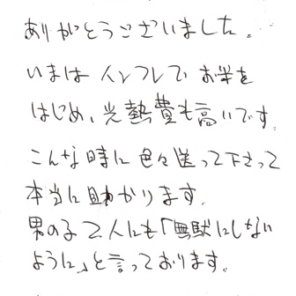 ありがとうございました。
いまは インフレで お米を
はじめ、光熱費も高いです。
こんな時に色々送って下さって
本当に助かります。
男の子2人にも「無駄にしない
ように」と言っております。